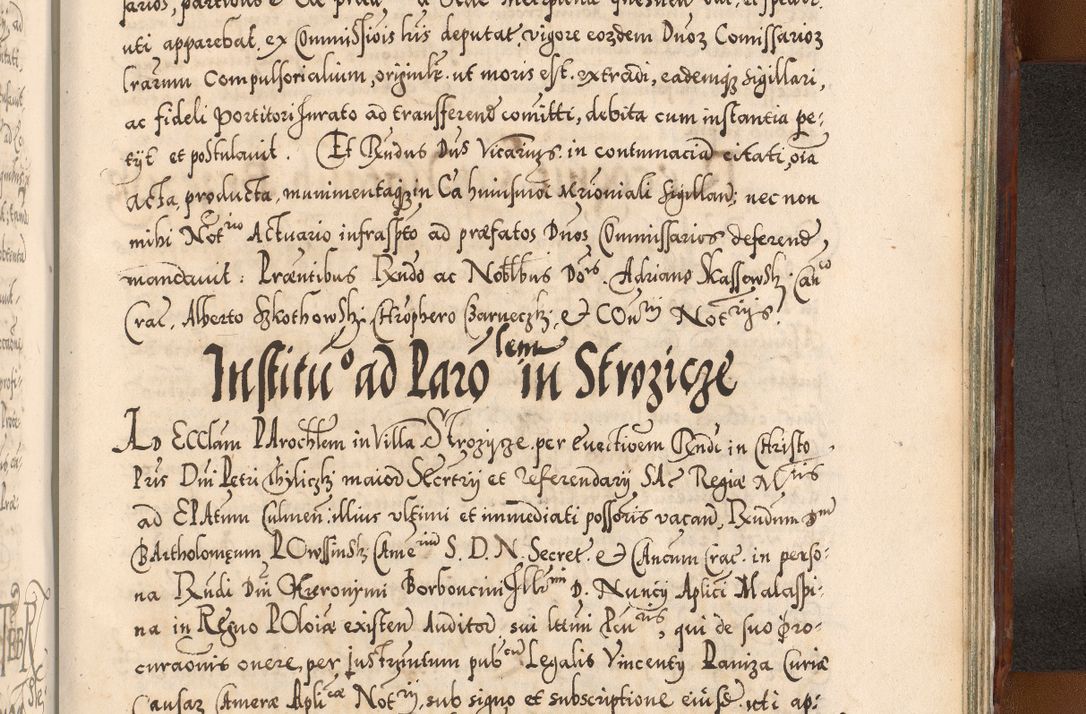 uti apparebat, ex Commissiois huis deputat, vigore eozdem Duoz Comissarioz
lrarum Compulsorialium, originlr. ut moris est. extradi, eademqz sigillari,
ac fideli Portitori Jurato ad transferend comitti, debita cum instantia pe:
tyt et postulavit. Et Rndus Dus Vicarius in contumacia citati, oia
Acta, producta, munimentaqz in Ca huiusmoi Mrioniali sigilland: nec non
mihi Notrio Actuario infraspto ad præfatos Dnos Commissarios deferend,
mandavit: Præntibus Rndo ac Nobllbus Dois. Adriano Skassewski Canco
Crac, Alberto Szkothowski, Chrophero Czarneczki, & COurij Notrijs.
Institu° ad Parolem in Strozicze
AD ECClam PArochlem in Villa Strozysze per evectioem Rndi in Christo
Pris Dni Petri Thyliczki maiord Secrtrij et referendarij SAc Regiæ Mtis
ad EPAtum Culmen: illius ultimi et immediati possoris vacand, Rndum Dnm
BArtholomęum POwssinski Came S. D. N. Secret. & CAncum Crac. in perso:
na Rndi Dni Hieronymi Borboncini Illrmi D. Nuncij Aplici Malaspi:
na in REgno POloiæ existen Auditor, sui ltimi Pcuris, qui de suo pro:
curaonis onere, per Justrumtum pubcum Legalis Vincenty Paniza Curiæ
Causaz CAmeræ Aplicæ Notrij, sub signo et subscriptione eiusd. uti ap: